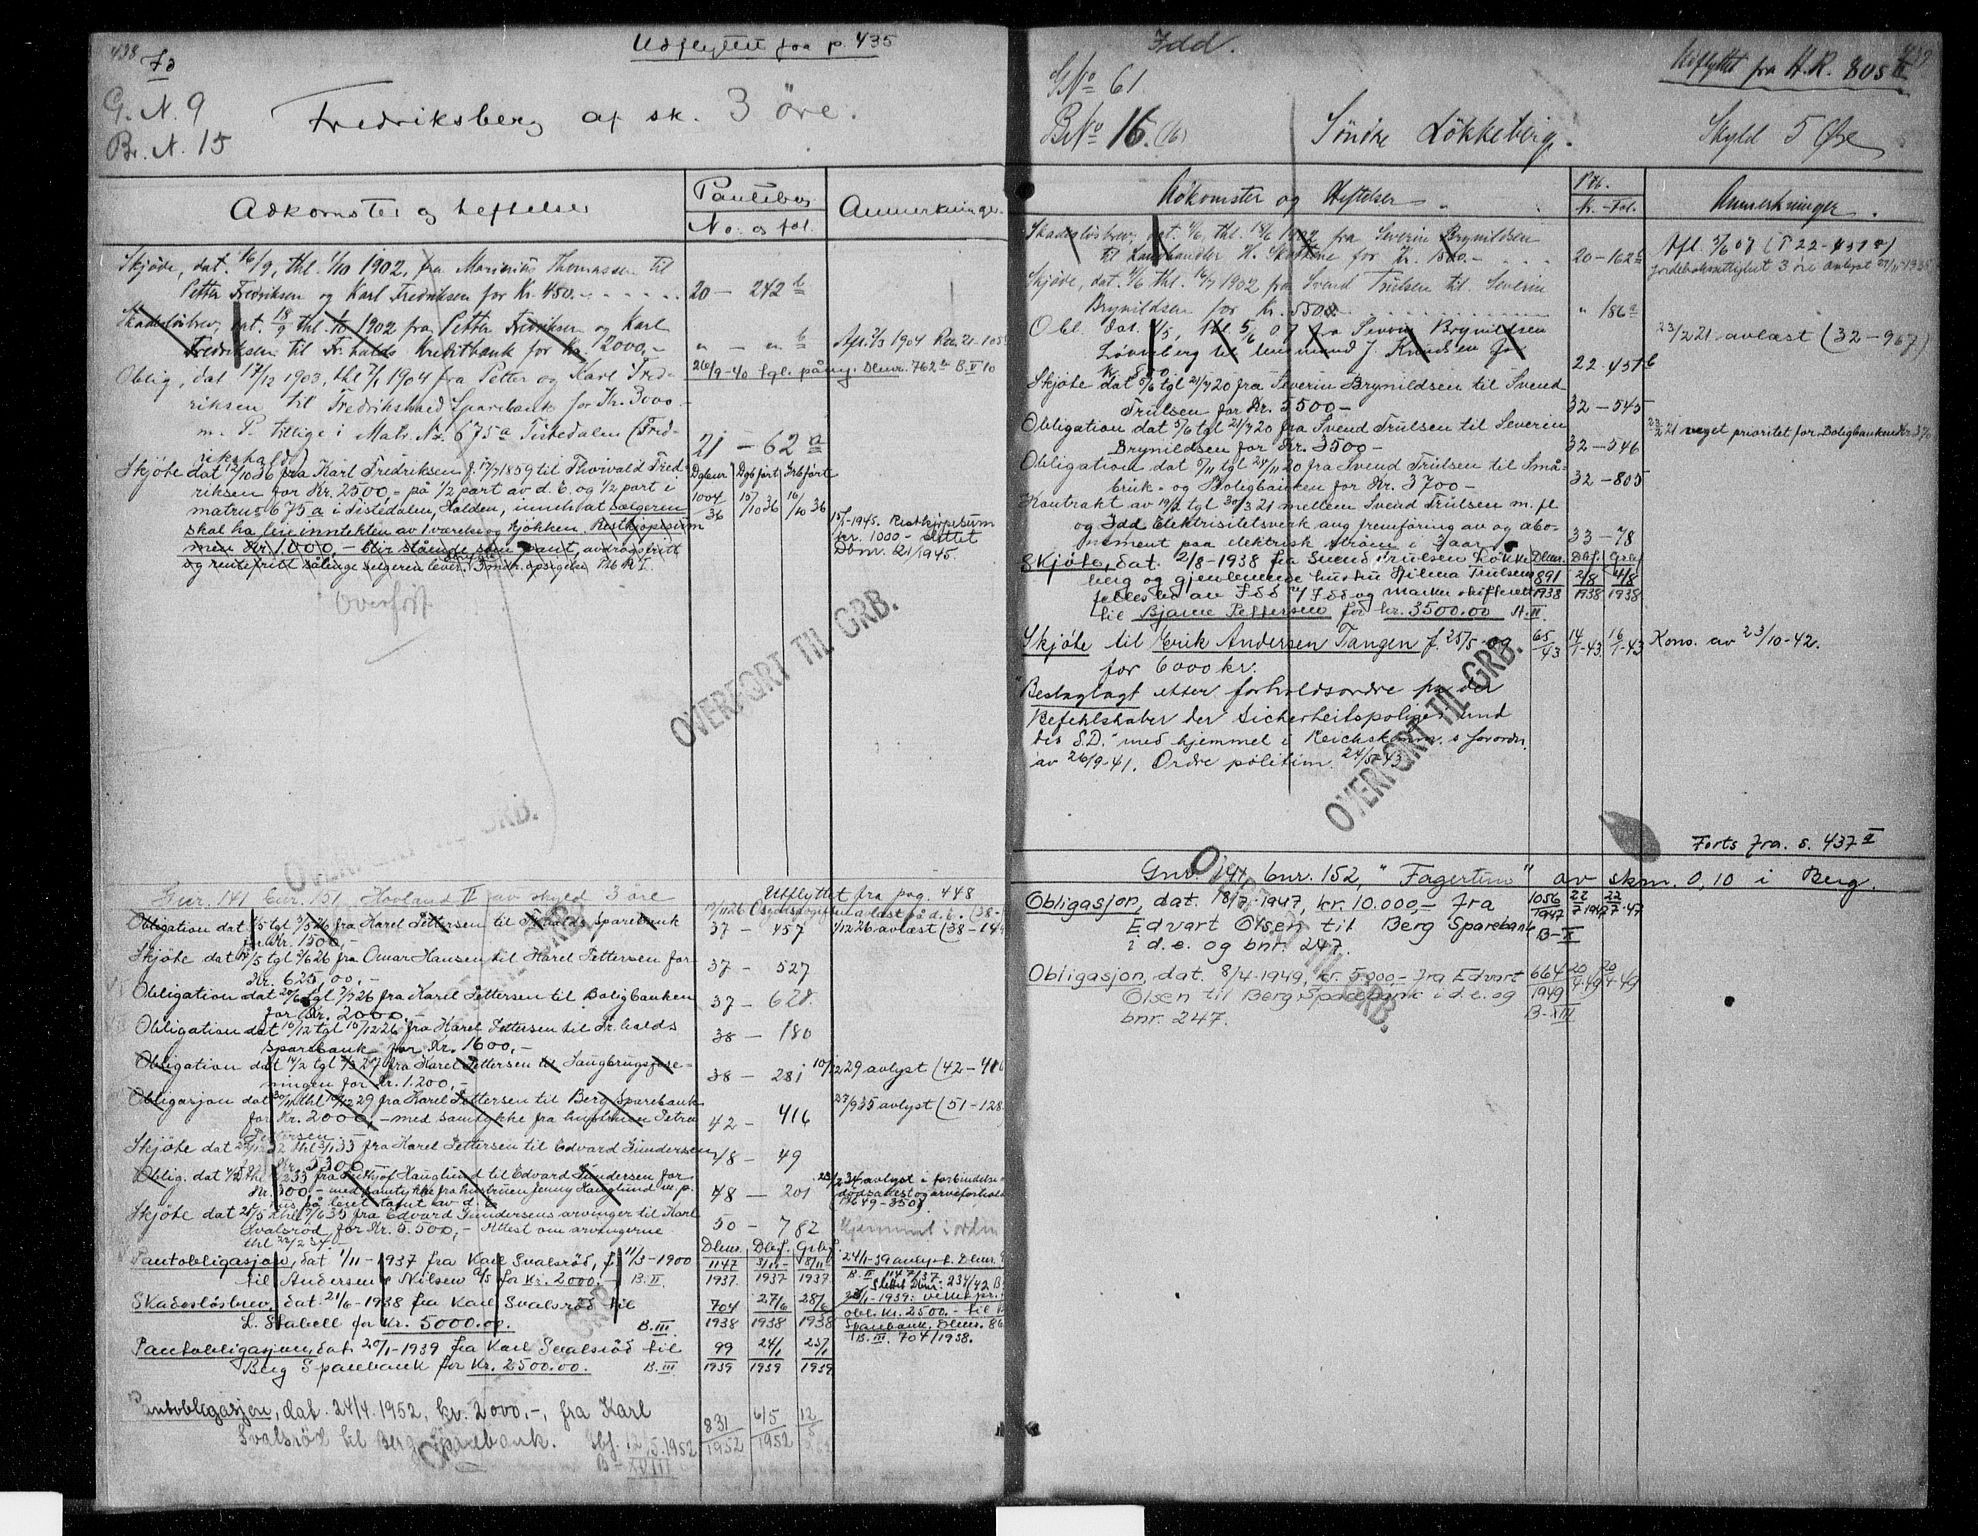 438
Udflyttet fra p. 435
G. N. 9
Br. N. 15
Fredriksberg af sk. 3 öre.
Adkomster og heftelser
Pantebog
No. og fol.
Anmerkninger
Skjöde, dat. 16/9, thl. 1/10 1902, fra Marinius Thomassen til
Petter Fredriksen og Karl Fredriksen for Kr. 450.-
20 - 242 b
Skadesløsbrev, dat. 18/9 thl. 1/10 1902 fra Petter Fredriksen og Karl
Fredriksen til Fr.halds Kreditbank for Kr. 12000,-
" - " b
26/9-40 tgl. påny. Dbnr. 762 B. V 10
Oblig, dat 17/12 1903, thl 7/1 1904 fra Petter og Karl Fred-
riksen til Fredrikshald Sparebank for Kr. 3000-
m. P. tillige i Matr. No. 675a Tistedalen (Fred-
rikshald)
21 - 62 a
Skjöte dat 12/10 36 fra Karl Fredriksen f. 17/7 1859 til Thorvald Fred-
riksen for Kr. 2500,- på 1/2 part av d. e. og 1/2 part i
matrno 675a i Tistedalen, Halden, inntatt sælgeren
skal ha fri inntekten av 1 værelse og kjökken Restkjöpesum
men Kr. 1000,- blir stående som pant, avdragsfritt
og rentefritt sålenge selgeren lever.
Dgbnr Dgbført Grbført
1004 15/10 36 16/10 36
36
1945. Restkjöpesum
kr. 1000- slettet
Dbnr. 21/1945.
Overført
OVERFØRT TIL GRB.
OVERFØRT TIL GRB.
Gnr. 141 bnr. 151 Hovland II av skyld 3 öre
Utflyttet fra pag. 448
Obligation dat 1/5 tgl 3/5 26 fra Karel Pettersen til Fr.halds Sparebank
for Kr. 1500,-
37 - 457
1/12 26 avlæst (38 - 14
Skjöte dat 18/5 tgl 2/6 26 fra Omar Hansen til Karel Pettersen for
Kr. 625,00,-
37 - 527
Obligation dat 20/6 tgl 1/7 26 fra Karel Pettersen til Boligbanken
for Kr. 2000.-
37 - 628
Obligation dat 10/12 tgl 15/12 26 fra Karel Pettersen til Fr.halds
Sparebank for Kr. 1600,-
38 - 180
Obligation dat 14/2 tgl 2/3 27 fra Karel Pettersen til Saugbrugsfore-
ningen for Kr. 1.200,-
38 - 281
10/12 29 avlyst (42 - 416
Obligasjon dat 30/11 thl 10/12 29 fra Karel Pettersen til Berg Sparebank
for Kr. 2000,- med samtykke fra hustruen Petra
Pettersen.-
42 - 416
27/9 35 avlyst (51 - 128
Skjöte dat 29/12 32 thl 3/1 33 fra Karel Pettersen til Edvard Gundersen
for Kr. 5300
48 - 49
Oblig. dat 4/2 thl 33 fra Fritjof Hauglund til Edvard Gundersen for
Kr. 300,- med samtykke fra hustruen Jenny Hauglund m. p.
hus på leiet tomt av d. e.
48 - 201
avlyst i forbindelse m
dødsattest og arveforhold
49-350
Skjöte dat 25/5 thl 7/6 35 fra Edvard Gundersens arvinger til Karl
Svalsröd for Kr. 5.500,- Attest om arvingerne
thl 22/2 34.-
50 - 782
Hjemmel i orden
Dbnr. Dbf. Grbf.
Pantobligasjon, dat 1/11 - 1937 fra Karl Svalsröd, f 11/3-1900
til Andersen & Nilsen A/S for Kr. 2000.- B. II.
1147 3/11- 18/11
1937. 1937 1937.
24/1-39 avlyst. Dbnr.
B. II 1147/37.
Skadesløsbrev, dat. 21/6 - 1938 fra Karl Svalsröd til
L. Stabell for Kr. 5000.00. B. III.
704 27/6 28/6
1938 1938 1938
Slettet Dbnr. 234/42 B
/1-1939: vek pr.
obl. Kr. 2500.- til B
Sparebank. Dbnr.
B. III. 704/1938.
Pantobligasjon, dat. 20/1-1939 fra Karl Svalsröd til
Berg Sparebank for Kr. 2500.00. B. III
99 24/1 25/1
1939 1939 1939
Pantobligasjon, dat. 24/4. 1952, kr. 2000.-, fra Karl
Svalsröd til Berg Sparebank. Gbf. 12/5.1952
B- XVIII
831 6/5 12/5
1952 1952
Idd.
Utflyttet fra H.R. 805 II
439
GNo 61
BNo 16. (16)
Söndre Lökkeberg.
Skyld 5 Øre
Adkomster og Heftelser
Ptb.
Nr. - Fol.
Anmerkninger.
Skadesløsbrev, dat. 4/6, thl. 14/6 1902 fra Severin Brynildsen
til Landhandler H. Skolleve for Kr. 1500.-
20 - 162 b
Afl. 3/6 07 (P 22 - 451 a)
Jordebokrettighet 3 öre avlyst
Skjöde, dat. 4/6 thl. 16/7 1902 fra Svend Trulsen til Severin
Brynildsen for kr. 550.-
" 186 a
Obl dat. 1/5, thl 5/6 07 fra Severin Brynildsen
Lökkeberg til Ungmand J. Knudsen for
kr. 800.
22 - 451 b
23/2 21 avlæst (32 - 967)
Skjöte dat 5/6 tgl 21/7 20 fra Severin Brynildsen til Svend
Trulsen for Kr. 5500-
32 - 545
Obligation dat 5/6 tgl 21/7 20 fra Svend Trulsen til Severin
Brynildsen for Kr. 3500-
32 - 546
23/2 21 veget prioritet for Boligbanken Kr. 3700
Obligation dat 5/11 tgl 24/11 20 fra Svend Trulsen til Små-
bruk- og Boligbanken for Kr. 3700-
32 - 805
Kontrakt av 19/2 tgl 30/3 21 mellem Svend Trulsen m. fl
og Idd Elektrisitetsverk ang. fremföring av og abo-
nement paa elektrisk ström i 3 aar
33 - 78
Skjöte, dat. 2/8 - 1938 fra Svend Trulsen Lökke-
berg og gjenlevende hustru Hilma Trulsens
fellesbo av Idd v/ Idd og Marker skifterett
til Bjarne Pettersen for kr. 3500.00 H. II.
Dbnr. Dbf. Grbf.
891 2/8 4/8
1938 1938 1938
Skjöte til Erik Andersen Tangen f. 25/5-09
for 6000 kr.
65/43 14/1-43 16/1-43
Kons. av 23/10-42.
"Beslaglagt etter forholdsordre fra der
Befehlshaber der Sicherheitspolizei und
des S.D." med hjemmel i Reichskomm. s forordn.
av 26/9-41. Ordre politim. 24/5-43.
OVERFØRT TIL GRB.
Forts fra. s. 437 a
Gnr. 141, bnr. 152, "Fagertun" av skm. 0,10 i Berg.
Obligasjon, dat. 18/7-1947, kr. 10.000,- fra
Edvart Olsen til Berg Sparebank
i d.e. og bnr. 247.
1056 22 22
1947 7 1947 7-47
B-X
Obligasjon, dat. 8/4-1949, kr. 5.000,- fra Edvart
Olsen til Berg Sparebank i d.e. og
bnr. 247.
664 20 20
1949 4-49 4-49
B-XIII